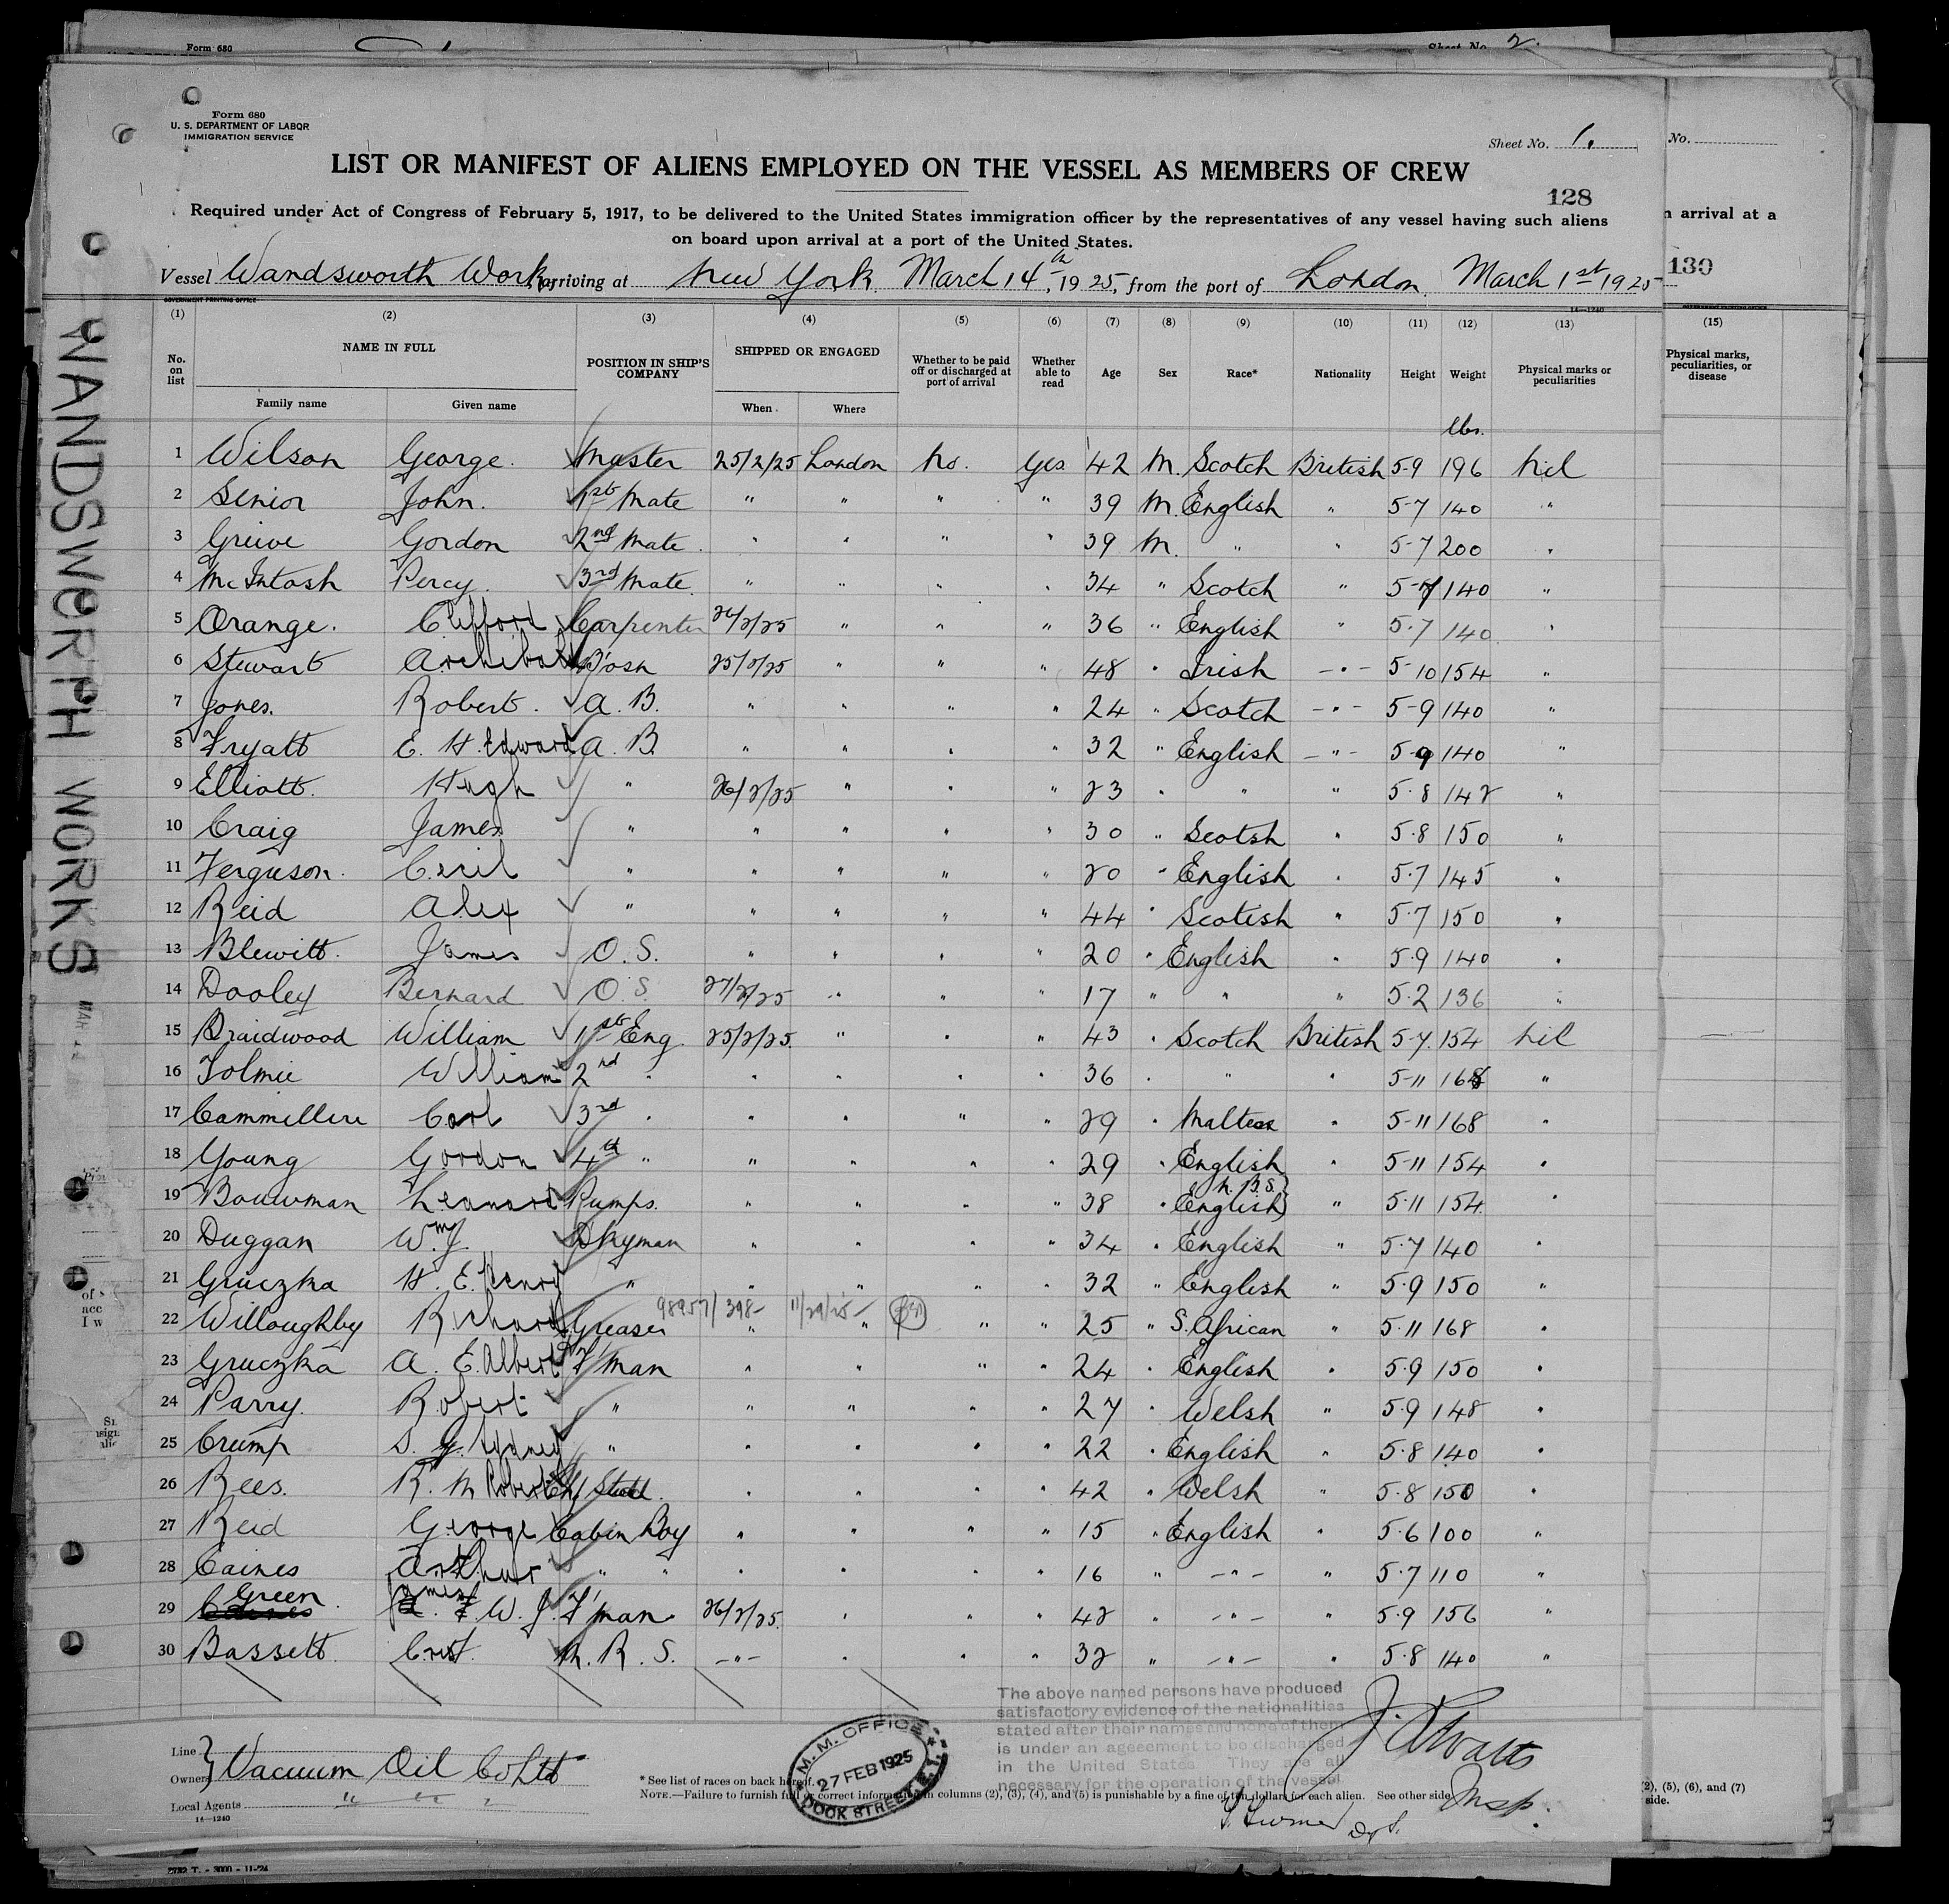 Form 680
Sheet No. 2.
Form 680
U. S. DEPARTMENT OF LABOR
IMMIGRATION SERVICE
Sheet No. 1.
No.
LIST OR MANIFEST OF ALIENS EMPLOYED ON THE VESSEL AS MEMBERS OF CREW
128
Required under Act of Congress of February 5, 1917, to be delivered to the United States immigration officer by the representatives of any vessel having such aliens
on board upon arrival at a port of the United States.
n arrival at a
130
Vessel Wandsworth Works, arriving at New York March 14th, 1925, from the port of London March 1st 1925
GOVERNMENT PRINTING OFFICE
14—1240
(1) (2) (3) (4) (5) (6) (7) (8) (9) (10) (11) (12) (13) (15)
No. on list NAME IN FULL Family name Given name POSITION IN SHIP'S COMPANY SHIPPED OR ENGAGED When Where Whether to be paid off or discharged at port of arrival Whether able to read Age Sex Race* Nationality Height Weight Physical marks or peculiarities
Physical marks, peculiarities, or disease
lbs.
1 Wilson George. Master 25/2/25 London No. Yes 42 M. Scotch British 5-9 196 Nil
2 Senior John. 1st Mate " " " " 39 M. English " 5-7 140 "
3 Greive Gordon 2nd Mate " " " " 39 M. " " 5-7 200 "
4 McIntosh Percy 3rd Mate " " " " 34 " Scotch " 5-7 140 "
5 Orange. Clifford Carpenter 24/2/25 " " " 36 " English " 5.7 140 "
6 Stewart Archibald B'osn 25/2/25 " " " 48 " Irish -"- 5-10 154 "
7 Jones. Robert. A. B. " " " " 24 " Scotch -"- 5-9 140 "
8 Fryatt E. H. Edward A. B. " " " " 32 " English -"- 5-9 140 "
9 Elliott. Hugh " 26/2/25 " " " 23 " " " 5.8 142 "
10 Craig James " " " " " 30 " Scotsh " 5.8 150 "
11 Ferguson. Cecil " " " " " 20 " English " 5.7 145 "
12 Reid Alex " " " " " 44 " Scotish " 5.7 150 "
13 Blewitt. James O. S. " " " " 20 " English " 5.9 140 "
14 Dooley Bernard O. S. 27/2/25 " " " 17 " " " 5.2 136 "
15 Braidwood William 1st Eng. 25/2/25. " " " 43 " Scotch British 5-7. 154 Nil
16 Tolmie William 2nd " " " " " 36 " " " 5-11 168 "
17 Cammilleri Carl 3rd " " " " " 29 " Maltese " 5-11 168 "
18 Young Gordon 4th " " " " " 29 " English " 5-11 154 "
N. B.S.
19 Bouwman Leonard Pumps. " " " " 38 " English " 5.11 154 "
20 Duggan Wm J. Dkyman " " " " 34 " English " 5.7 140 "
21 Gruczka H. E. Henry " " " " " 32 " English " 5.9 150 "
98957/398- 11/29/25-
22 Willoughby Richard Greaser " " " " 25 " S. African " 5.11 168 "
23 Gruczka A. E. Albert F'man " " " " 24 " English " 5.9 150 "
24 Parry. Robert " " " " " 27 " Welsh " 5.9 148 "
25 Crump S. J. Sydney " " " " " 22 " English " 5.8 140 "
26 Rees. R. M Robert Chf Stwd. " " " " 42 " Welsh " 5.8 150 "
27 Reid George Cabin Boy " " " " 15 " English " 5.6 100 "
28 Caines Arthur " " " " " " 16 " -"- " 5.7 110 "
29 Green. James F. W. J. F'man 26/2/25. " " " 42 " -"- " 5.9 156 "
30 Bassett. Crist. M. R. S. -"- " " " 32 " -"- " 5.8 140 "
The above named persons have produced
satisfactory evidence of the nationalities
stated after their names and none of them
is under an ageeement to be discharged
in the United States They are all
necessary for the operation of the vessel
Line
Owners Vacuum Oil Co Ltd
Local Agents " " "
14—1240
M. M. OFFICE
27 FEB 1925
DOCK STREET, E.1.
* See list of races on back hereof.
NOTE.—Failure to furnish full or correct information in columns (2), (3), (4), and (5) is punishable by a fine of ten dollars for each alien. See other side
Insp.
(2), (5), (6), and (7)
side.
2732 T. - 3000 - 11-24
WANDSWERPH WORKS